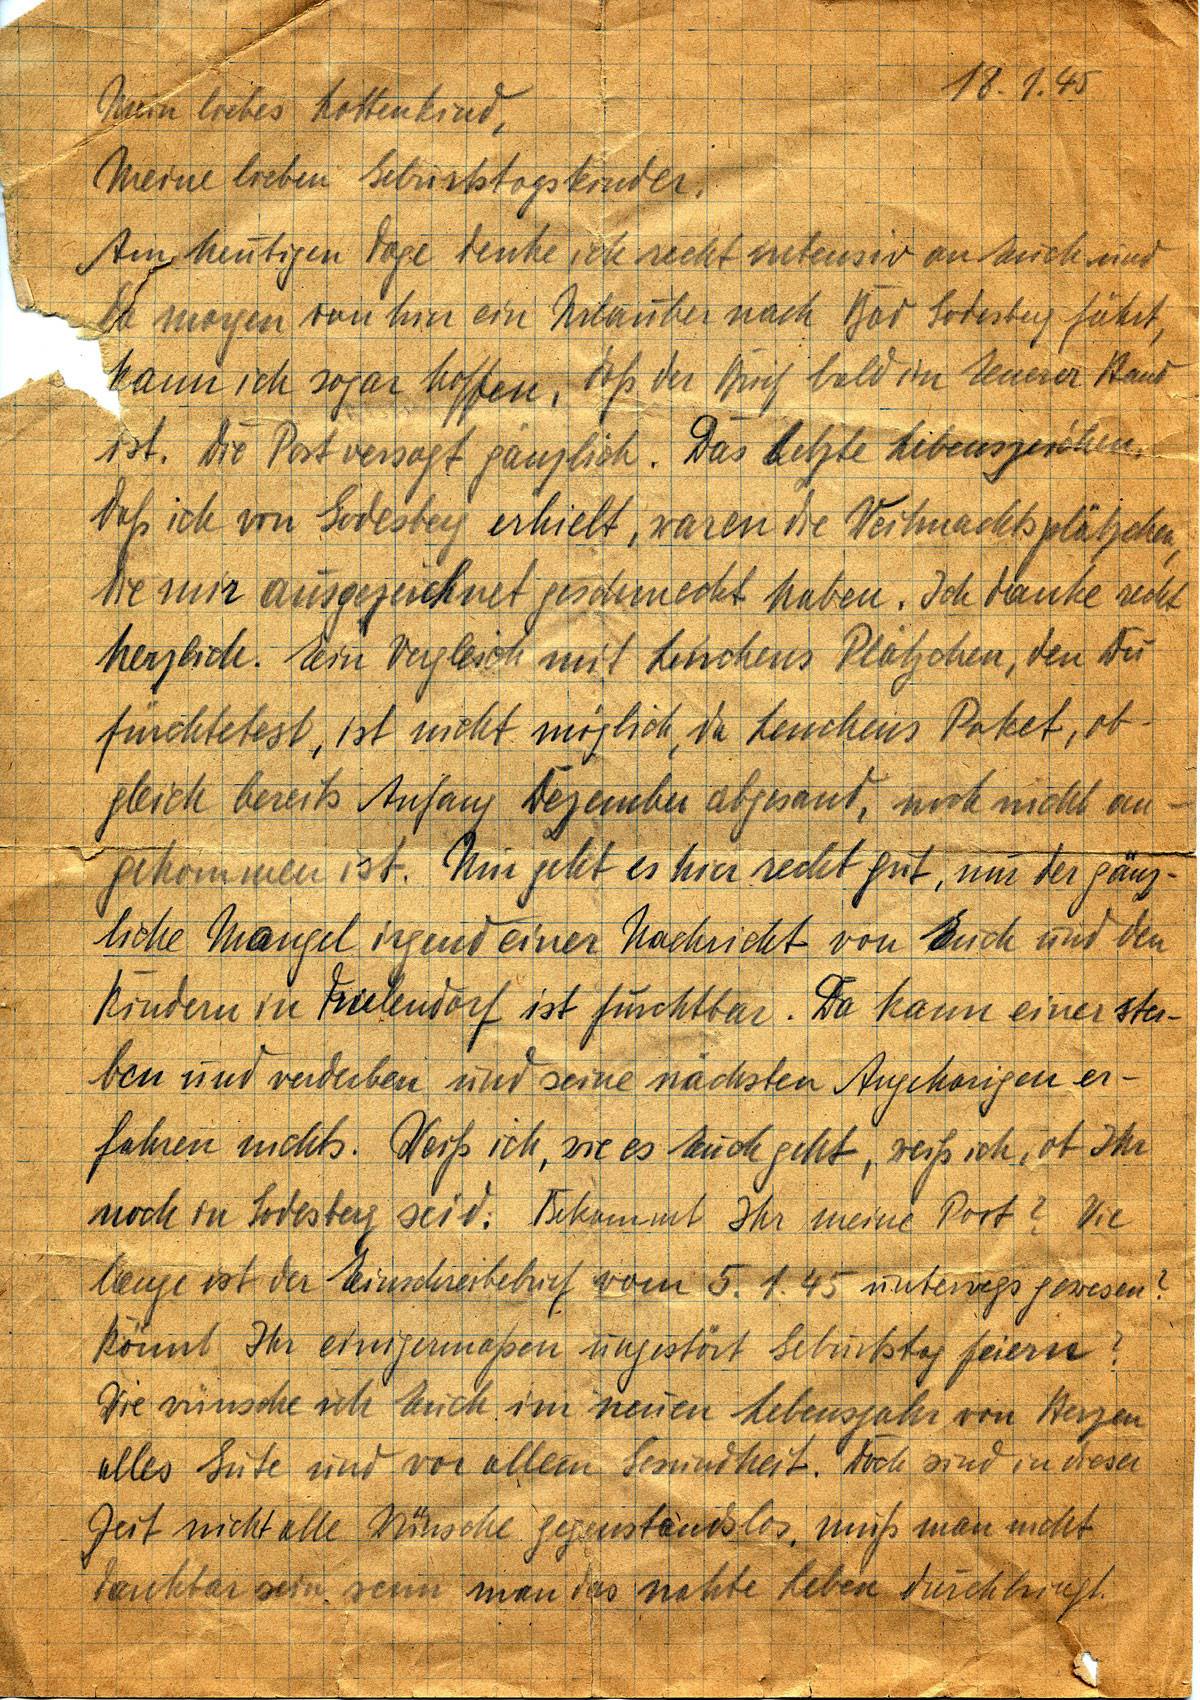 18. 1. 45
Mein liebes Lottenkind,
Meine lieben Geburtstagskinder,
Am heutigen Tage denke ich recht intensiv an Euch und
da morgen von hier ein Urlauber nach Bad Godesberg fährt,
kann ich sogar hoffen, daß der Brief bald in Euerer Hand
ist. Die Post versagt gänzlich. Das letzte Lebenszeichen,
daß ich von Godesberg erhielt, waren die Weihnachtsplätzchen,
die mir ausgezeichnet geschmeckt haben. Ich danke recht
herzlich. Ein Vergleich mit Lenchens Plätzchen, den Du
fürchtetest, ist nicht möglich, da Lenchens Paket, ob-
gleich bereits Anfang Dezember abgesand, noch nicht an-
gekommen ist. Mir geht es hier recht gut, nur der gänz-
liche Mangel irgend einer Nachricht von Euch und den
Kindern in ist furchtbar. Da kann einer ster-
ben und verderben und seine nächsten Angehörigen er-
fahren nichts. Weiß ich, wie es Euch geht, weiß ich, ob Ihr
noch in Godesberg seid. Bekommt Ihr meine Post? Wie
lange ist der Einschreibebrief vom 5. 1. 45 unterwegs gewesen?
Könnt Ihr einigermaßen ungestört Geburtstag feiern?
Wie wünsche ich Euch im neuen Lebensjahr von Herzen
alles Gute und vor allem Gesundheit. Doch sind in dieser
Zeit nicht alle Wünsche gegenstandslos, muß man nicht
dankbar sein wenn man das nakte Leben durchbringt.